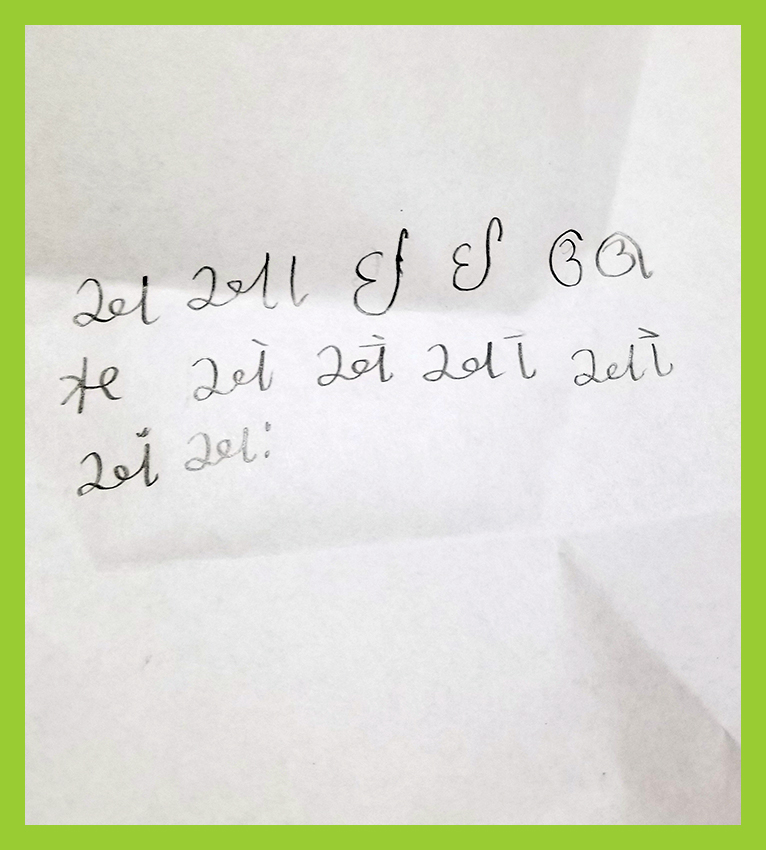 અ આ ઈ ઈ ઉ ઊ
ઋ એ ઐ ઓ ઔ
અં અઃ